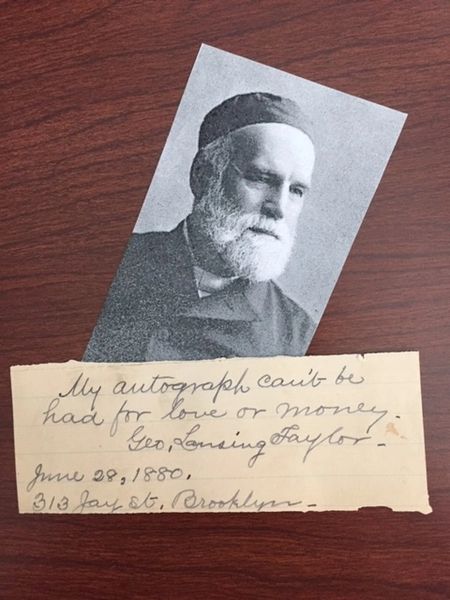 My autograph can't be
had for love or money.
Geo. Lansing Taylor –
June 28, 1880.
313 Jay St. Brooklyn –